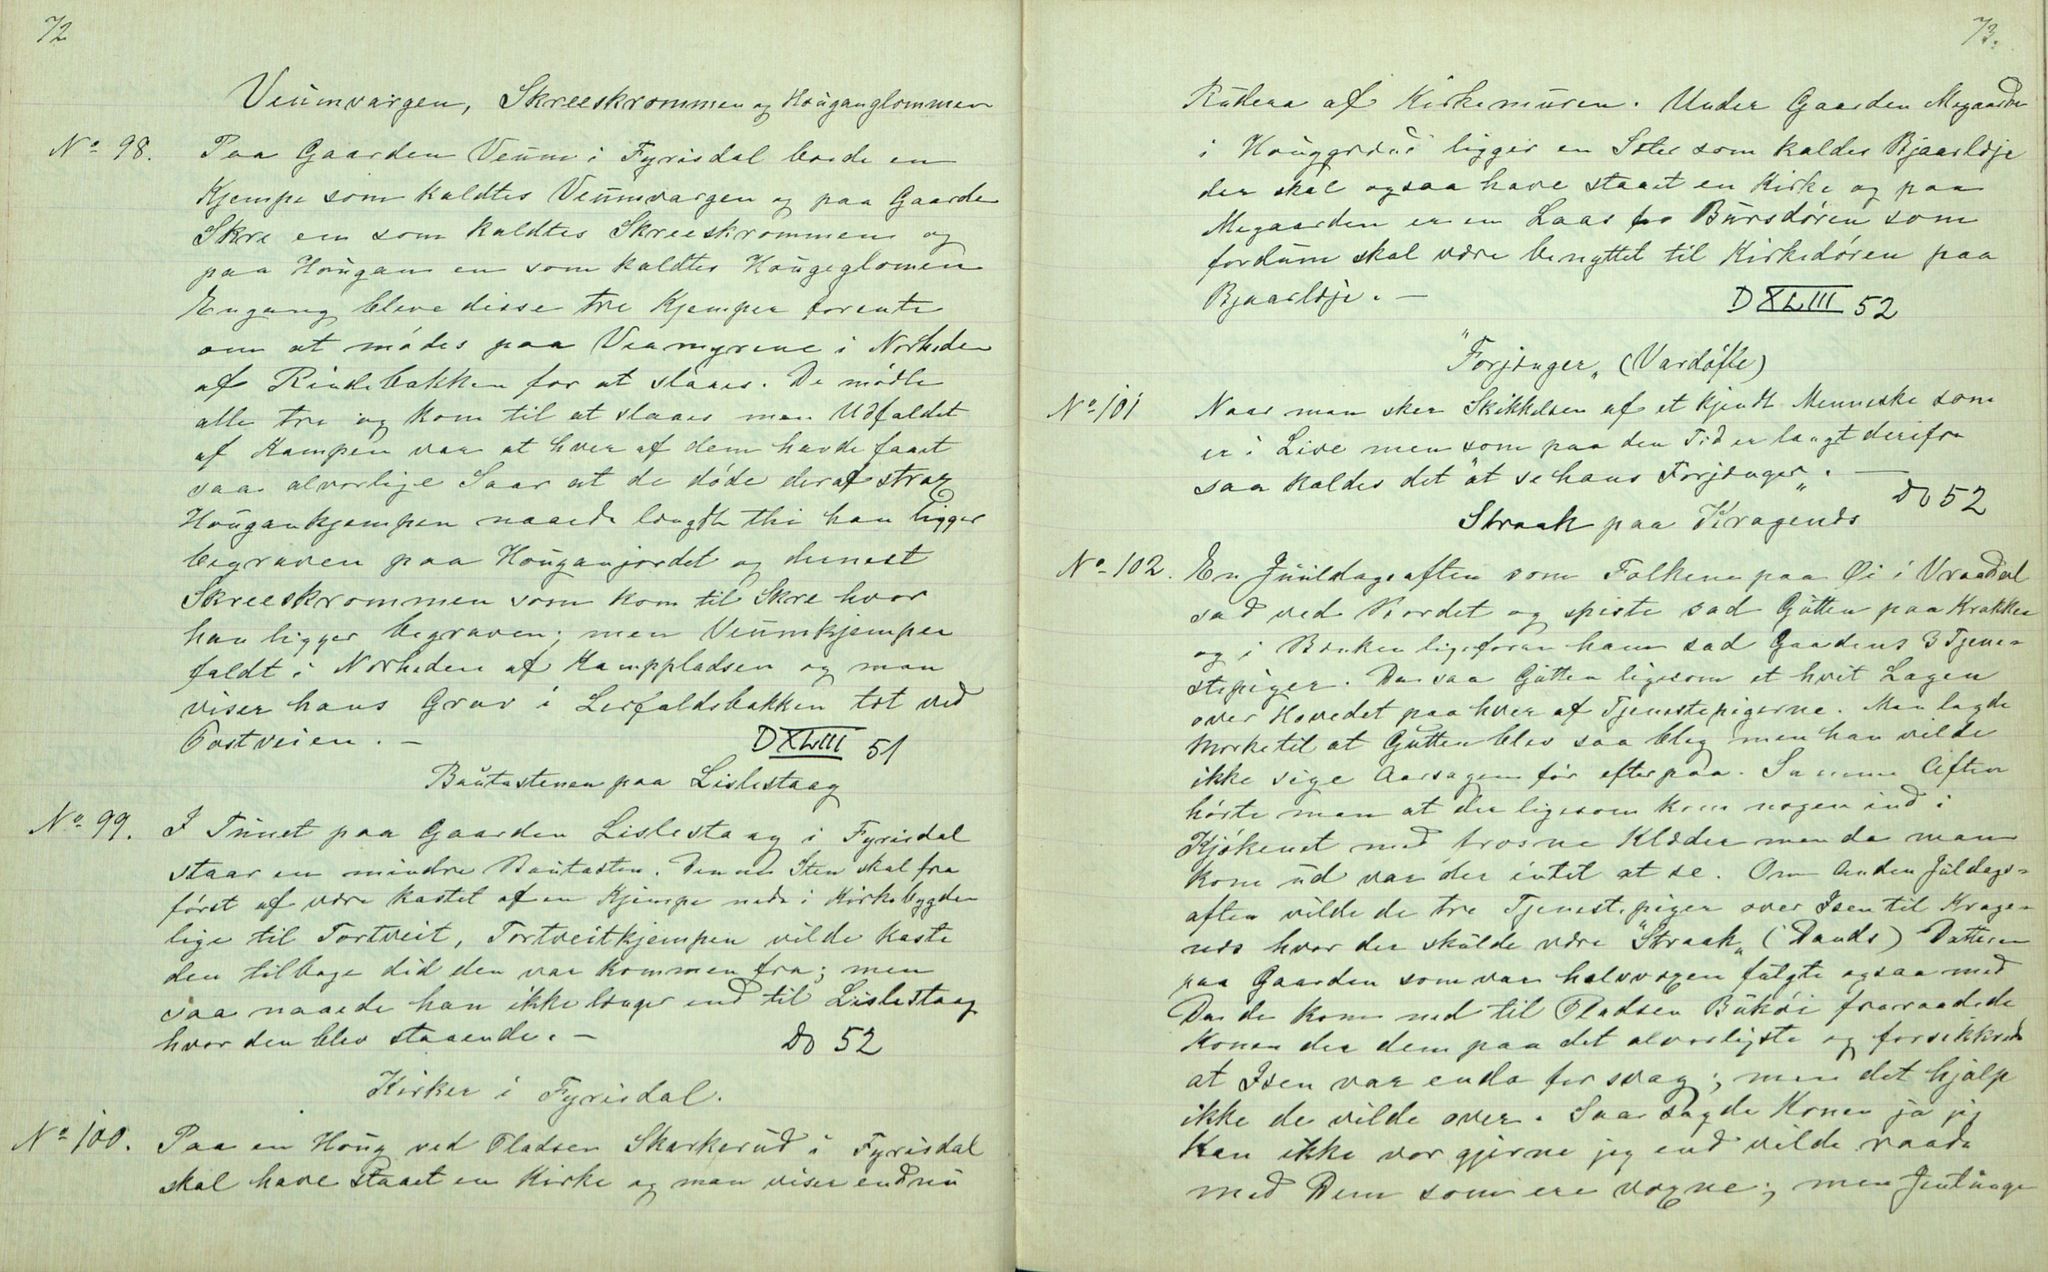 72
Veumvargen, Skreeskrommen og Houganglommen
No 98. Paa Gaarden Veum i Fyrisdal boede en
Kjempe som kaldtes Veumvargen og paa Gaarden
Skre en som kaldtes Skreeskrommen og
paa Hougan en som kaldtes Hougeglomen
Engang bleve disse tre Kjemper forente
om at mödes paa Veamyrene i Norheden
af Rindebakken for at slaaes. De mödte
alle tre og kom til at slaaes men Udfaldet
af Kampen var at hver af dem havde faaet
saa alvorlige Saar at de döde deraf strax
Hougankjempen naaede længdt thi han ligger
begraven paa Houganjordet og dernest
Skreeskrommen som kom til Skre hvor
han ligger begraven; men Veumkjempen
faldt i Norheden af Kamppladsen og man
viser hans Grav i Lerfaldsbakken tæt ved
Postveien. —
D XLIII 51
Bautastenen paa Lislestaag
No 99. I Tunet paa Gaarden Lislestaag i Fyrisdal
staar en mindre Bautasten. Denne Sten skal fra
först af være kastet af en Kjempe nede i Kirkebygden
lige til Tortveit, Tortveitkjempen vilde kaste
den tilbage did den var kommen fra; men
saa naaede han ikke længer end til Lislestaag
hvor den blev staaende. —
Do 52
Kirker i Fyrisdal.
No 100. Paa en Houg ved Pladsen Skarkerud i Fyrisdal
skal have staaet en Kirke og man viser endnu
73.
Rudera af Kirkemuren. Under Gaarden Megaarden
i ligger en Sæter som kaldes Bjaarlöje
der skal ogsaa have staaet en Kirke og paa
Megaarden er en Laas for Bursdören som
fordum skal være benyttet til Kirkedören paa
Bjaarlöje. —
D XLIII 52
"Forjænger" (Vardöfle)
No 101 Naar man sker Skikkelsen af et kjendt Menneske som
er i Live men som paa den Tid er langt derifra
saa kaldes det "at se hans Forjænger". —
Do 52
Straak paa Kragenæs
No 102. En Juuldagsaften som Folkene paa Öi i Vraadal
sad ved Bordet og spiste sad Gutten paa Krakken
og i Bænken ligeforan ham sad Gaadens 3 Tjene-
stepiger. Da saa Gutten ligesom et hvit Lagen
over Hovedet paa hver af Tjenestepigerne. Man lagde
Mærke til at Gutten blev saa bleg men han vilde
ikke sige Aarsagen för efterpaa. Samme Aften
hörte man at der ligesom kom nogen ind i
Kjökenet med frosne Klæder men da man
kom ud var der intet at se. Om Anden Juldags-
aften vilde de tre Tjenestepiger over Isen til Krage-
næs hvor der skulde være "Straak" (Dands) Datteren
paa Gaarden som var halvvogen fulgte ogsaa med
Da de kom ned til Pladsen Buköi fraraadede
Konen der dem paa det alvorligste og forsikkrede
at Isen var enda for svag; men det hjalp
ikke de vilde over. Saa sagde Konen ja jeg
Kan ikke vor gjerne jeg end vilde raade
med Dem som ere vogne; men Jentunge